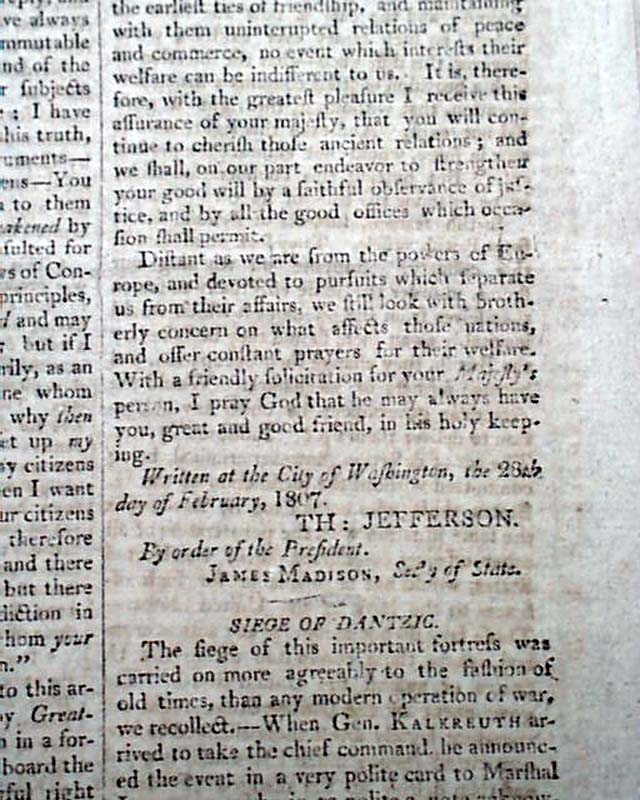 ve always
mmutable
nd of the
r subjects
I have
his truth,
uments—
ens—You
to them
akened by
ſulted for
rs of Con-
principles,
and may
but if I
rily, as an
ne whom
why then
et up my
y citizens
en I want
ur citizens
therefore
and there
but there
diction in
hom your
n."
to this ar-
y Great-
n in a for-
board the
ful right
the earlieſt ties of friendſhip, and maintaining
with them uninterrupted relations of peace
and commerce, no event which intereſts their
welfare can be indifferent to us. It is, there-
fore, with the greateſt pleaſure I receive this
aſſurance of your majeſty, that you will con-
tinue to cheriſh thoſe ancient relations; and
we ſhall, on our part endeavor to ſtrengthen
your good will by a faithful obſervance of juſ-
tice, and by all the good offices which occa-
ſion ſhall permit.
Diſtant as we are from the powers of Eu-
rope, and devoted to purſuits which ſeparate
us from their affairs, we ſtill look with broth-
erly concern on what affects thoſe nations,
and offer conſtant prayers for their welfare.
With a friendly ſolicitation for your Majeſty's
perſon, I pray God that he may always have
you, great and good friend, in his holy keep-
ing.
Written at the City of Waſhington, the 28th
day of February, 1807.
TH: JEFFERSON.
By order of the Preſident.
JAMES MADISON, Sec'y of State.
SIEGE OF DANTZIC.
The ſiege of this important fortreſs was
carried on more agreeably to the faſhion of
old times, than any modern operation of war,
we recollect.—When Gen. KALKREUTH ar-
rived to take the chief command, he announc-
ed the event in a very polite card to Marſhal